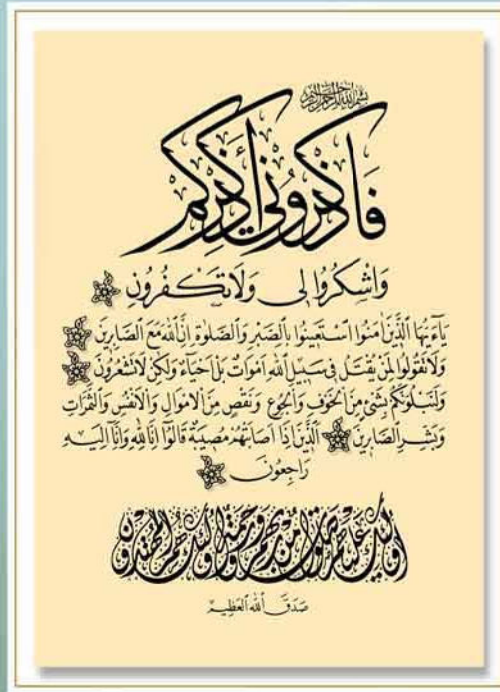 بسم الله الرحمن الرحيم
فَاذْكُرُونِي أَذْكُرْكُمْ
وَاشْكُرُوا لِي وَلَا تَكْفُرُونِ
يَاءَيُّهَا الَّذِينَ اٰمَنُوا اسْتَعِينُوا بِالصَّبْرِ وَالصَّلٰوةِ اِنَّ اللّٰهَ مَعَ الصَّابِرِينَ
وَلَا تَقُولُوا لِمَنْ يُقْتَلُ فِي سَبِيلِ اللّٰهِ اَمْوَاتٌ بَلْ اَحْيَاءٌ وَلٰكِنْ لَا تَشْعُرُونَ
وَلَنَبْلُوَنَّكُمْ بِشَيْءٍ مِنَ الْخَوْفِ وَالْجُوعِ وَنَقْصٍ مِنَ الْاَمْوَالِ وَالْاَنْفُسِ وَالثَّمَرَاتِ
وَبَشِّرِ الصَّابِرِينَ الَّذِينَ اِذَا اَصَابَتْهُمْ مُصِيبَةٌ قَالُوا اِنَّا لِلّٰهِ وَاِنَّا اِلَيْهِ
رَاجِعُونَ
اُولٰئِكَ عَلَيْهِمْ صَلَوَاتٌ مِنْ رَبِّهِمْ وَرَحْمَةٌ وَاُولٰئِكَ هُمُ الْمُهْتَدُونَ
صَدَقَ اللّٰهُ الْعَظِيمُ